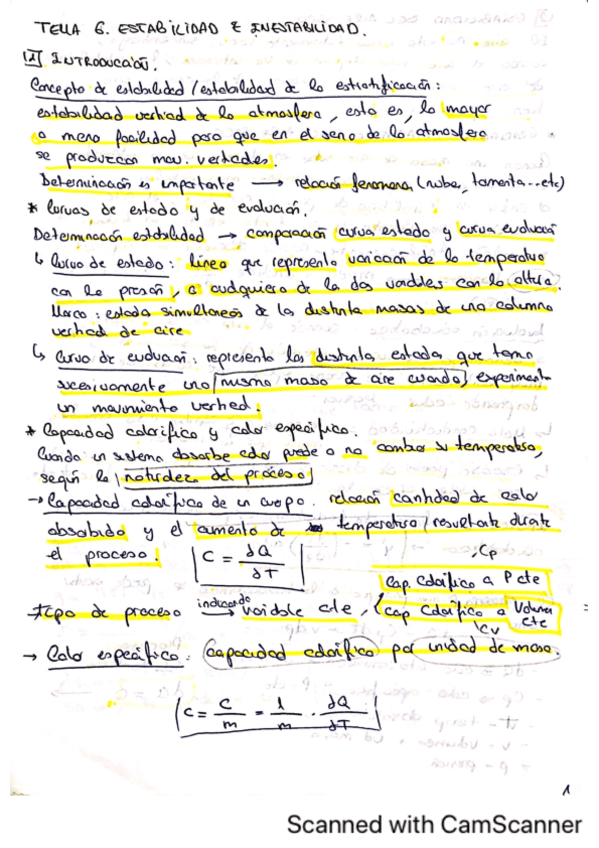 TEMA 6. ESTABILIDAD E INESTABILIDAD.
1 INTRODUCCIÓN.
Concepto de estabilidad / estabilidad de la estratificación:
estabilidad vertical de la atmosfera, esto es, la mayor
o menor facilidad para que en el seno de la atmosfera
se produzcan mov. verticales.
Determinación es importante → relación fenomenos (nubes, tormenta...etc)
* Curvas de estado y de evolución.
Determinación estabilidad → comparación curva estado y curva evolución
↳ Curva de estado: línea que representa variación de la temperatura
con la presión, o cualquiera de las dos variables con la altura.
Marca: estados simultaneos de las distintas masas de una columna
vertical de aire
↳ Curva de evolución: representa los distintos estados que toma
sucesivamente una misma masa de aire cuando experimenta
un movimiento vertical.
* Capacidad calorífica y calor específico.
Cuando un sistema absorbe calor puede o no cambiar su temperatura,
según la naturaleza del proceso
→ Capacidad calorífica de un cuerpo: relación cantidad de calor
absorbido y el aumento de temperatura / resultante durante
el proceso. C = dQ / dT Cp
Cap. Calorífica a P cte
→ tipo de proceso indicando variable cte, cap calorífica a Volumen cte
Cv
→ Calor específico: Capacidad calorífica por unidad de masa.
c = C / m = 1 / m · dQ / dT
1
Scanned with CamScanner